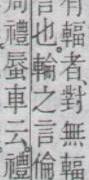 有輻者對無輻
言也輪之言倫
周禮蜃車云禮